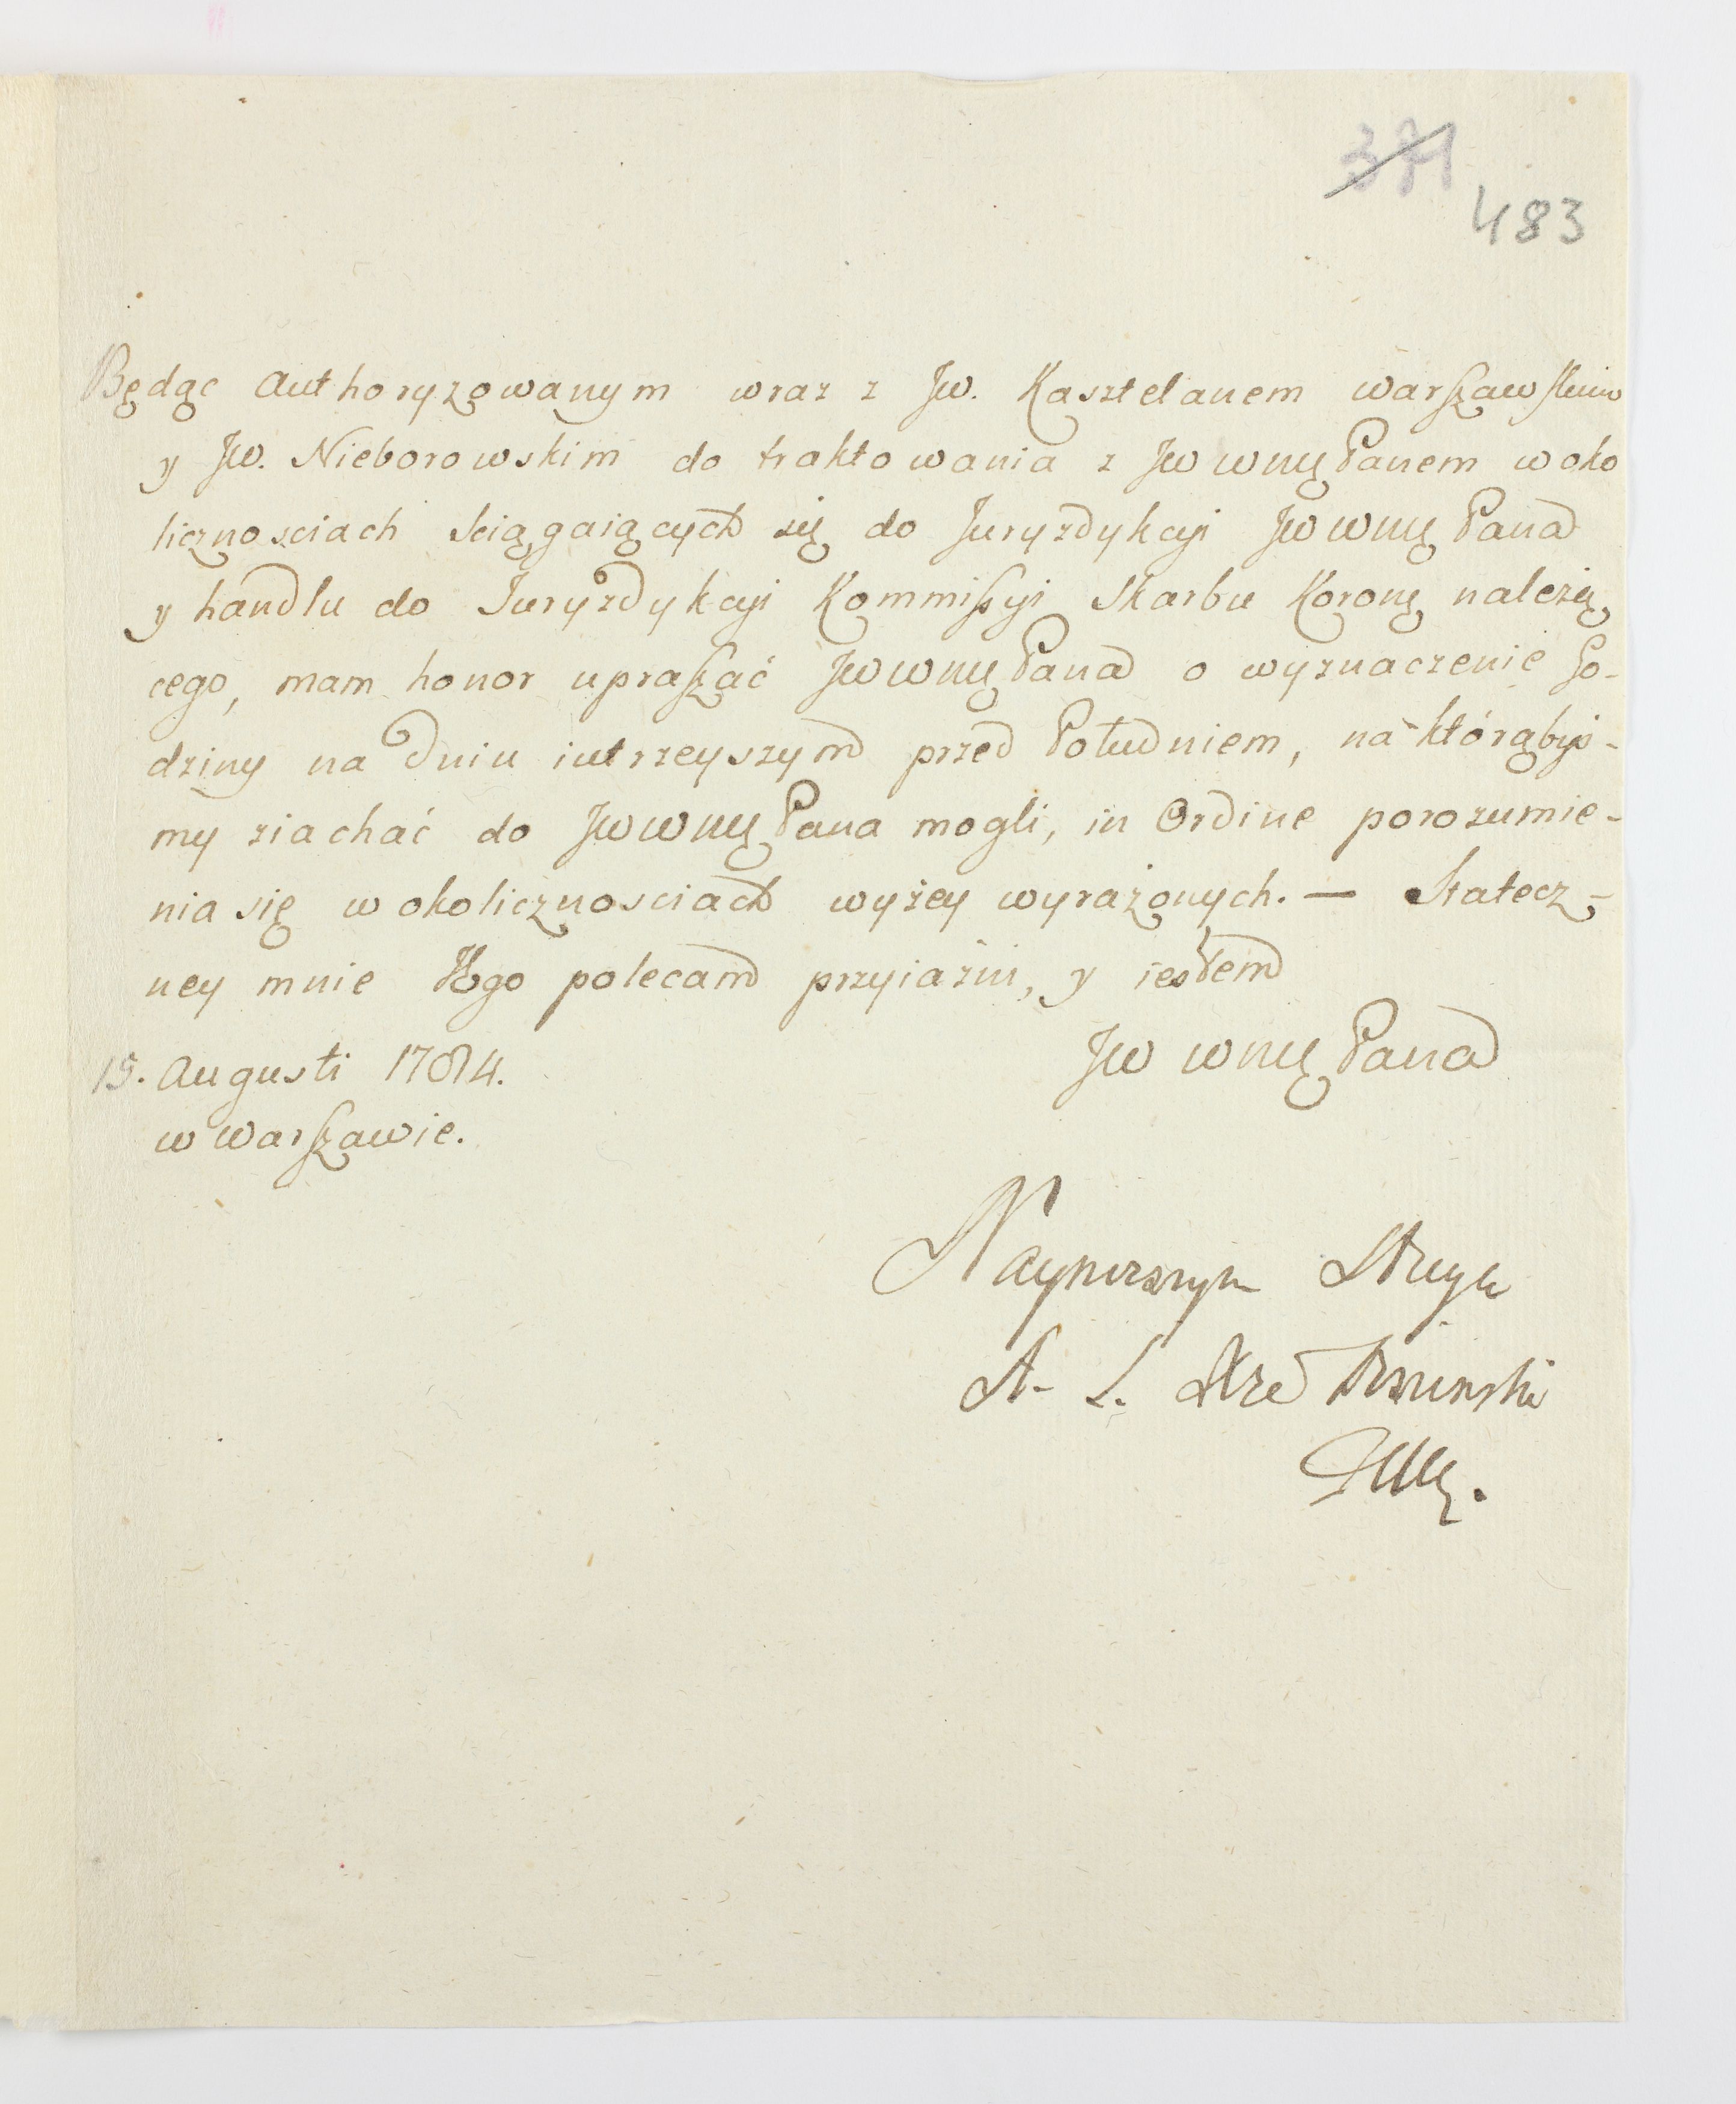 371
483
Będąc authoryzowanym wraz z Jw. Kasztelanem warszawskim
y Jw. Nieborowskim do traktowania z Jw wnɪɪ Panem w oko
licznosciach sciągaiących się do Juryzdykcyi Jw wnɪɪ Pana
y handlu do Juryzdykcyi Kommissyi Skarbu Koronɪɪ należą
cego, mam honor upraszać Jw wnɪɪ Pana o wyznaczenie Go-
dziny na dniu iutrzeyszym przed Południem, na którąbyś-
my ziachać do Jw wnɪɪ Pana mogli, in Ordine porozumie-
nia się w okolicznosciach wyżey wyrażonych. — Statecz-
ney mnie Jego polecam przyiaźni, y iestem
Jw wnɪɪ Pana
15. Augusti 1784.
w Warszawie.
Nayniższym Sługą
A. L.